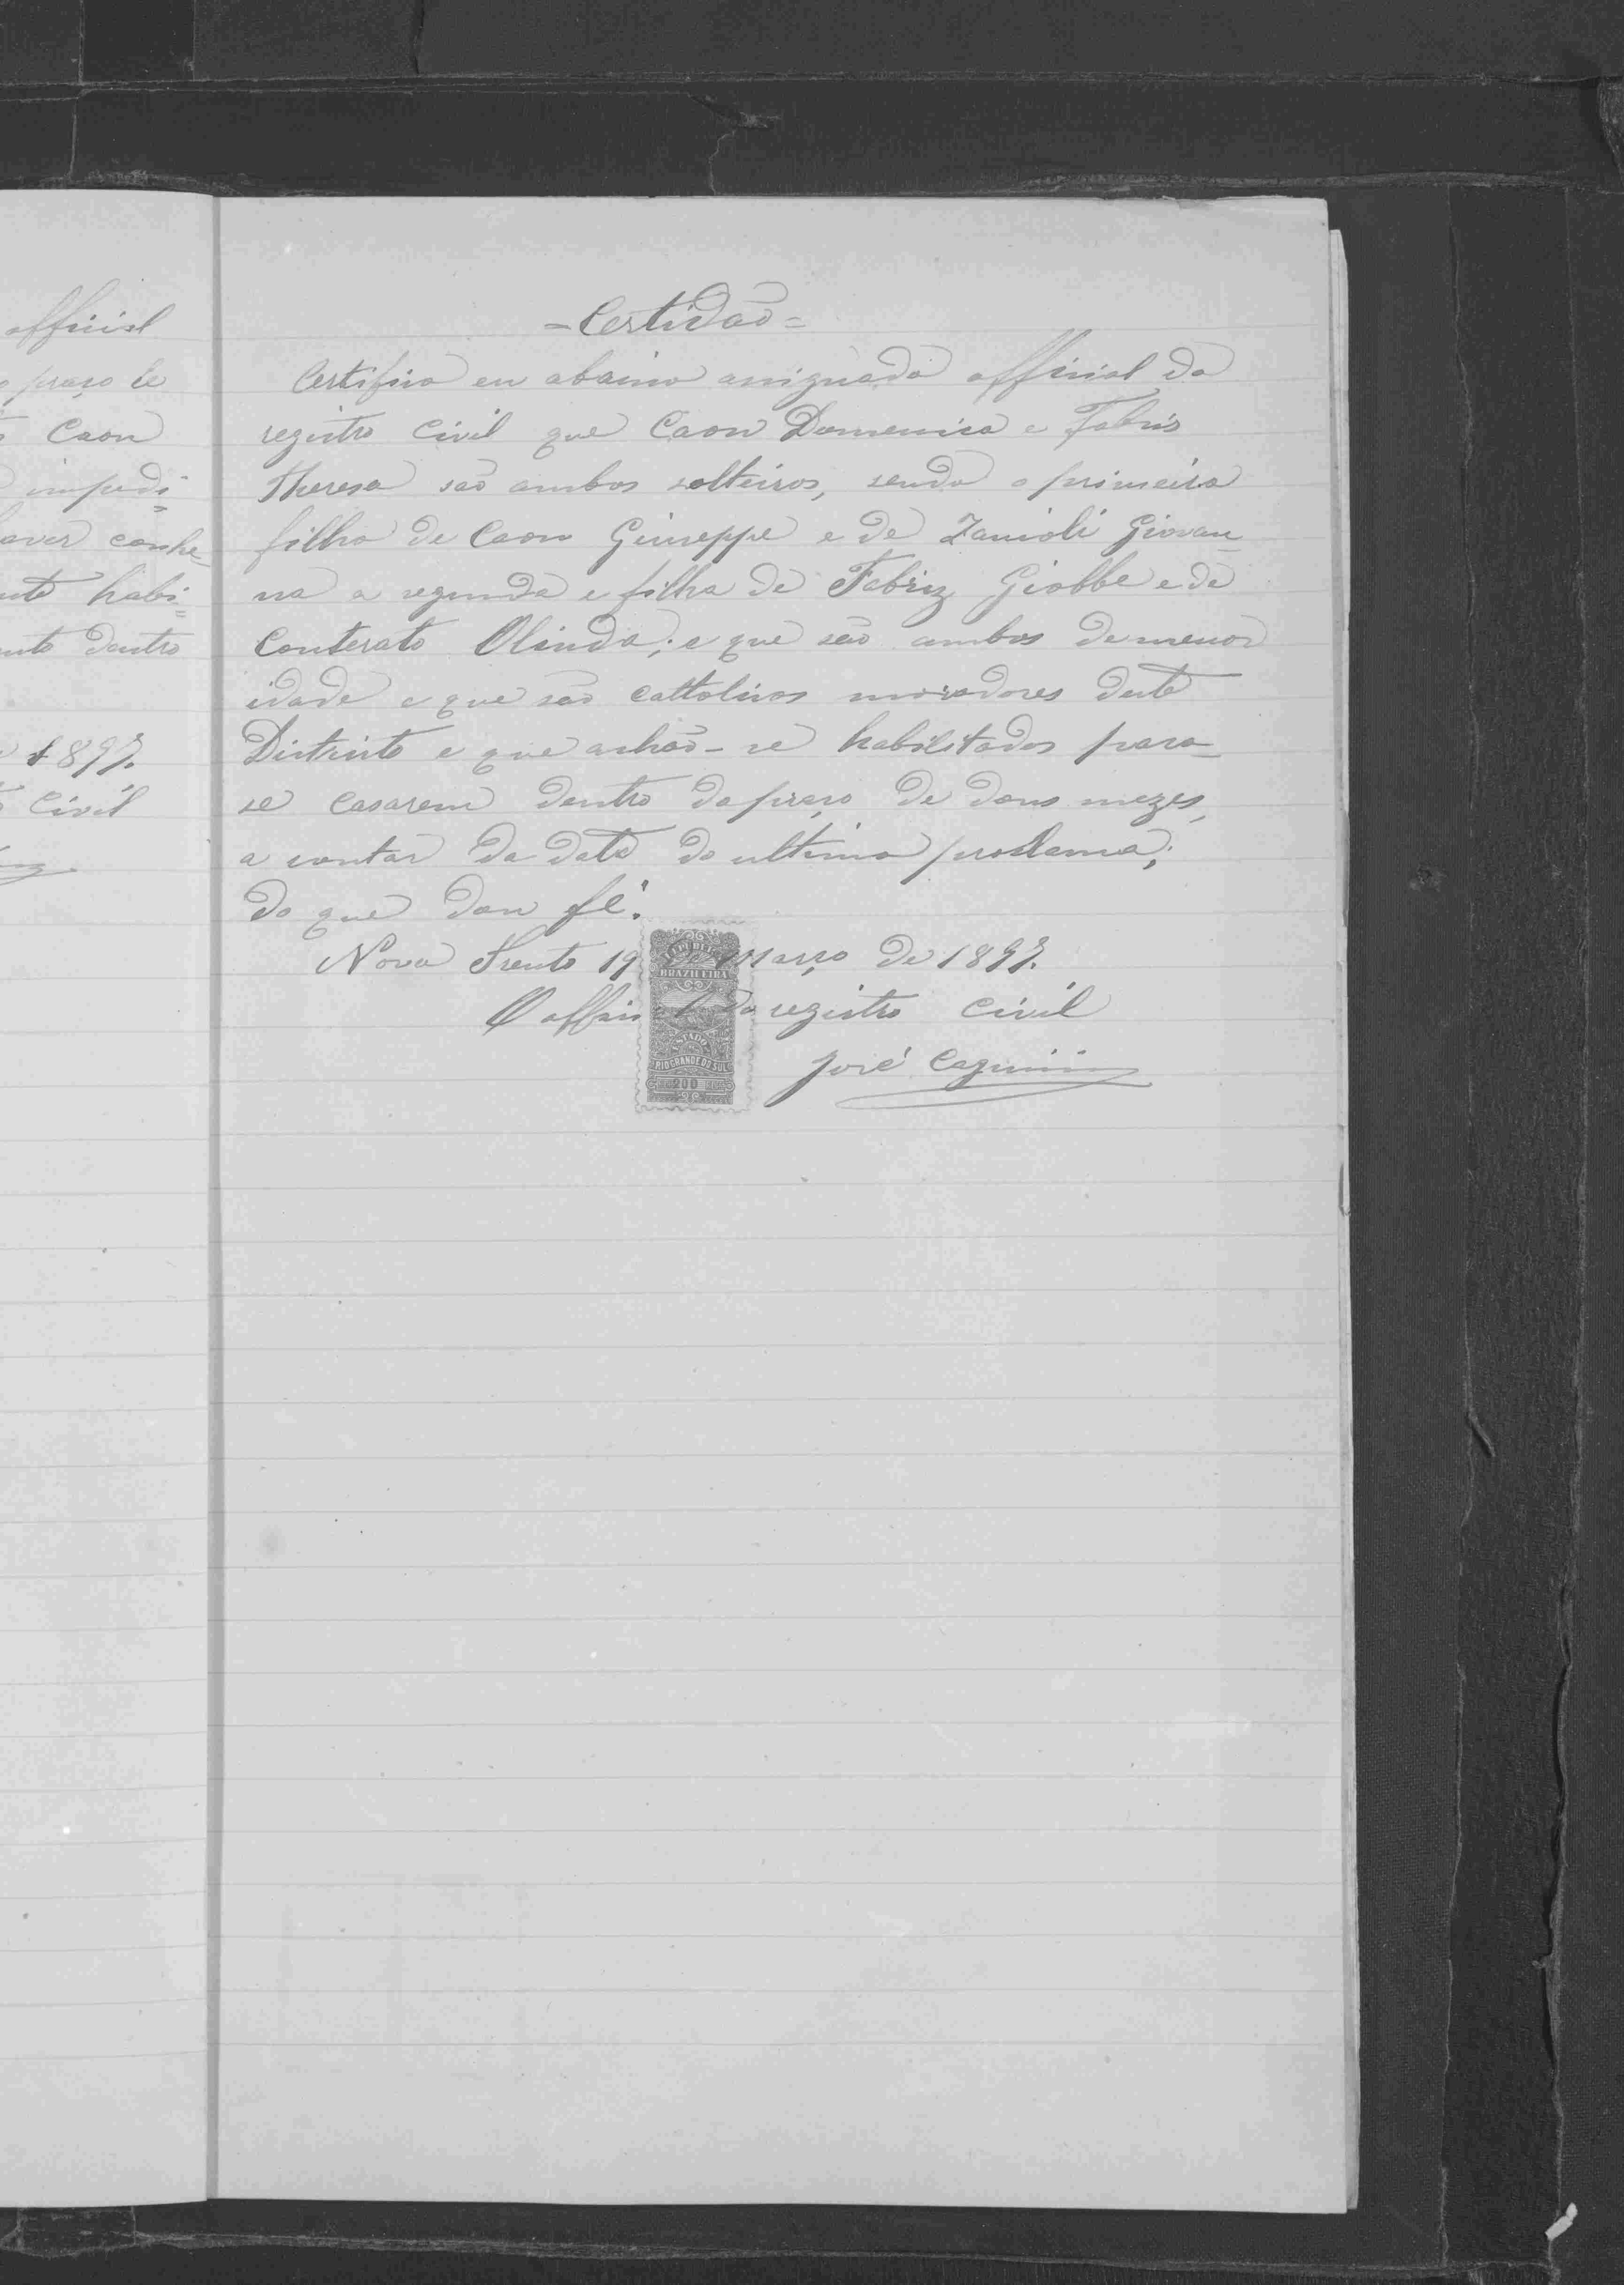 official
prazo le
Caon
impedi=
aver conhe=
habi=
nto dentro
1897.
Civil
=Certidão=
Certifico eu abaixo assignado official do
registro Civil que Caon Domenico e Fabris
Theresa são ambos solteiros, sendo o primeiro
filho de Caon Giuseppe e de Zanioli Giovan
na a segunda e filha de Fabriz Giobbe e de
Conterato Olinda; e que são ambos de menor
idade e que são cattolicos moradores deste
Districto e que achão-se habilitados para
se casarem dentro do prazo de dous mezes,
a contar da data do ultimo proclama;
do que dou fé.
Nova Trento 19 de Março de 1897.
O official do registro Civil
José
REPUBLICA
BRAZILEIRA
ESTADO
RIO GRANDE DO SUL
200